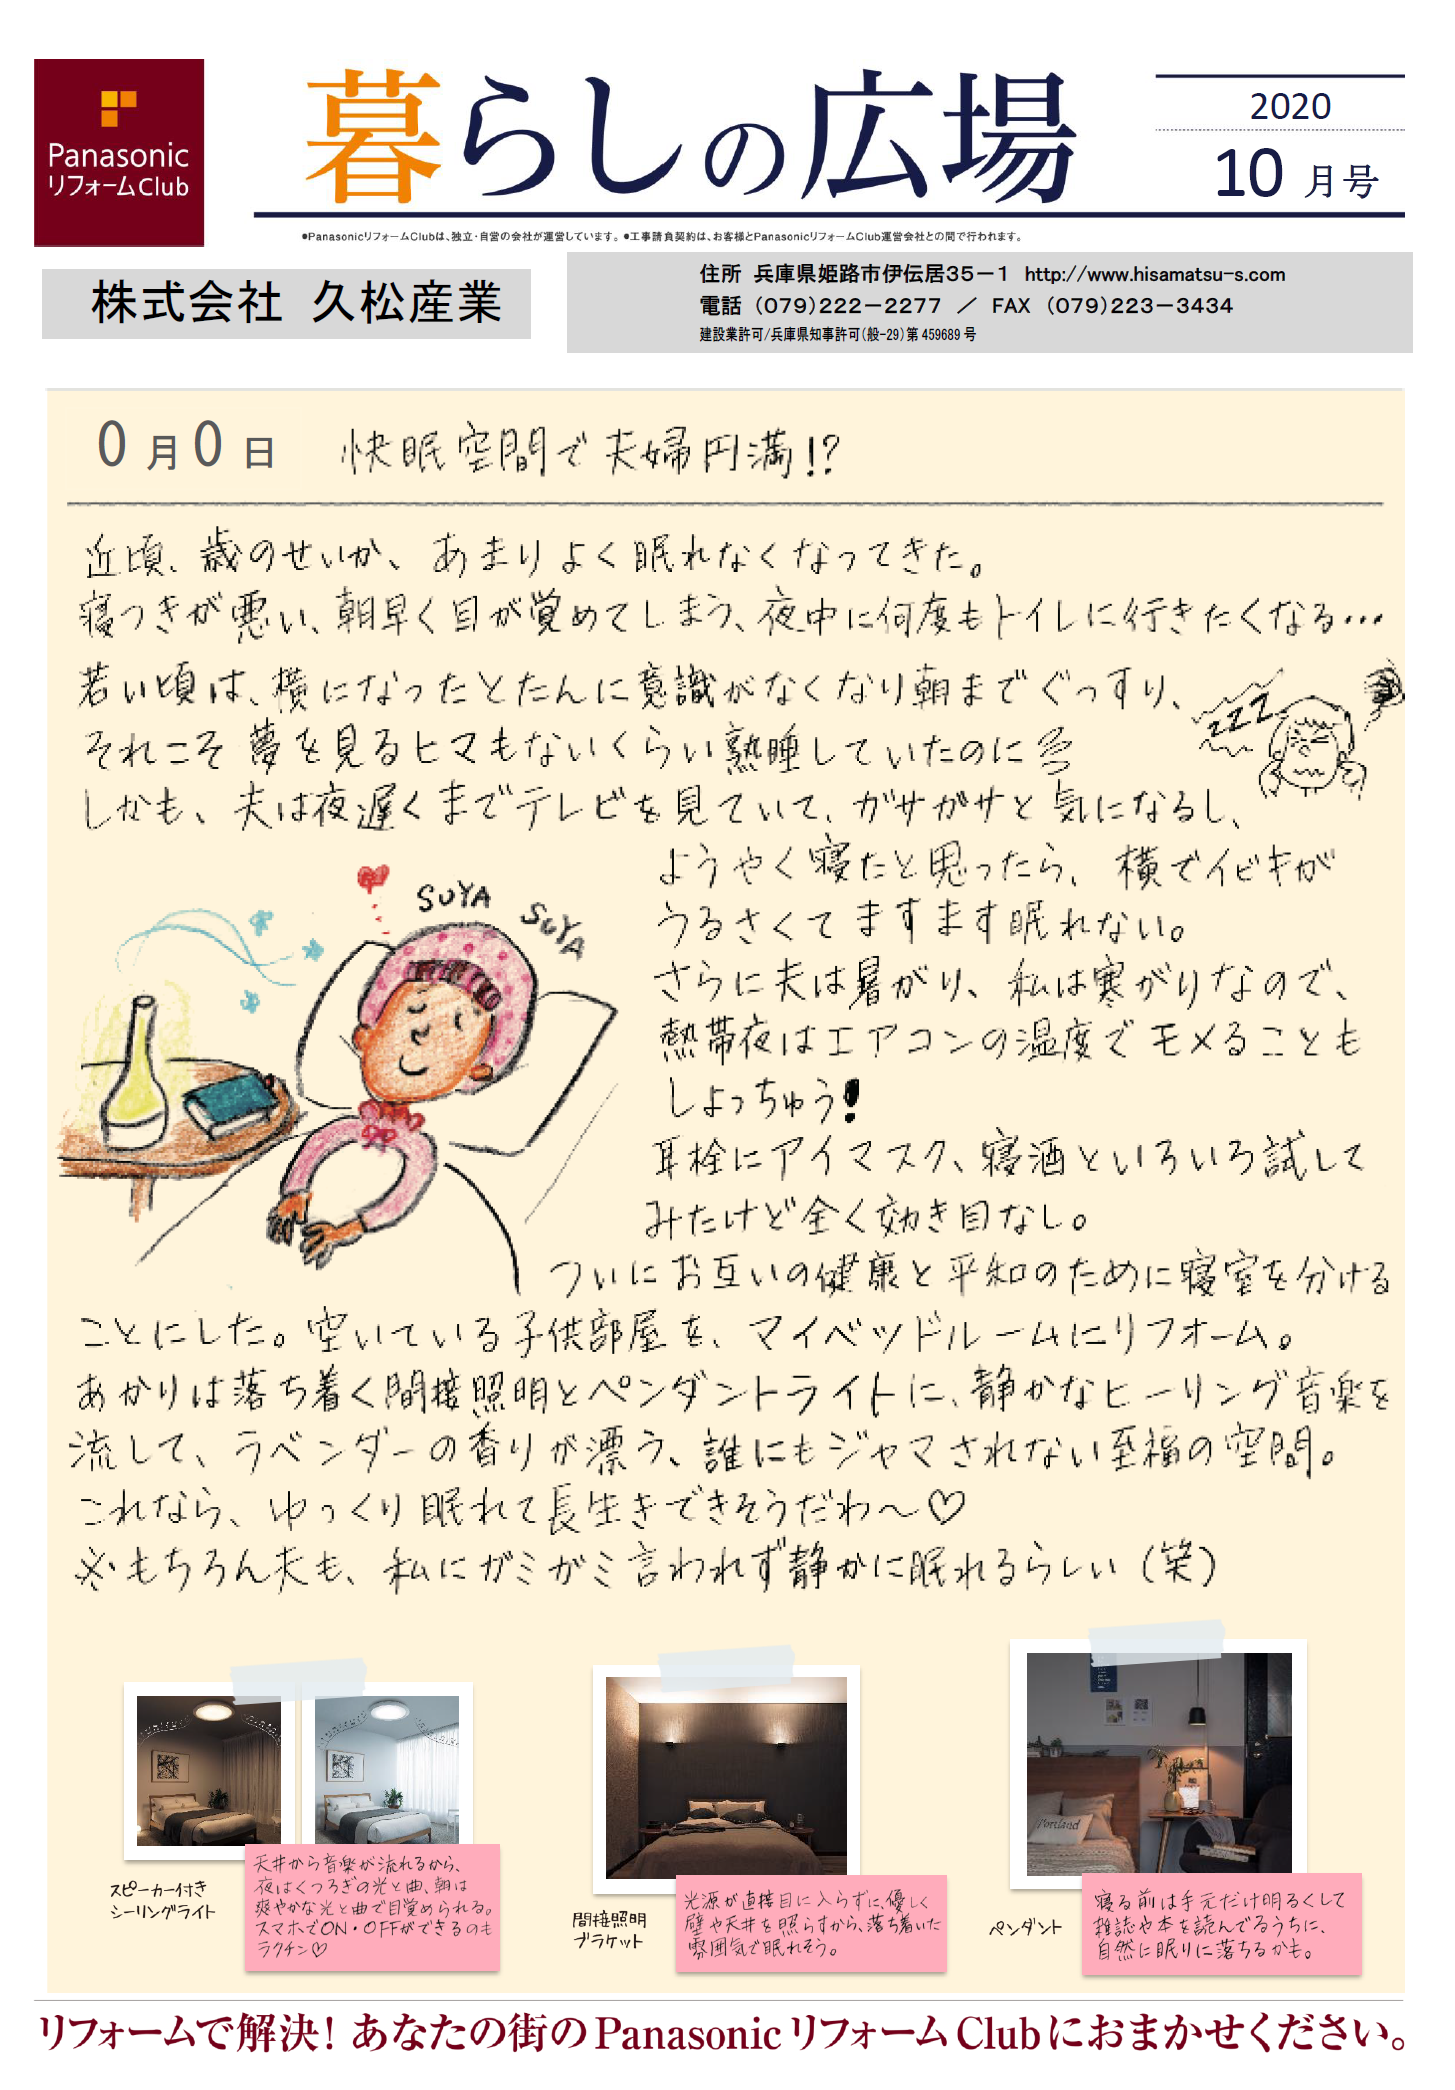 Panasonic
リフォームClub
暮らしの広場
2020
10 月号
●PanasonicリフォームClubは、独立・自営の会社が運営しています。●工事請負契約は、お客様とPanasonicリフォームClub運営会社との間で行われます。
株式会社 久松産業
住所 兵庫県姫路市伊伝居35－1 http://www.hisamatsu-s.com
電話 (079)222－2277 ／ FAX (079)223－3434
建設業許可/兵庫県知事許可(般-29)第459689号
0月0日 快眠空間で夫婦円満!?
近頃、歳のせいか、あまりよく眠れなくなってきた。
寝つきが悪い、朝早く目が覚めてしまう、夜中に何度もトイレに行きたくなる…
若い頃は、横になったとたんに意識がなくなり朝までぐっすり、
それこそ夢を見るヒマもないくらい熟睡していたのに
ZZZ
しかも、夫は夜遅くまでテレビを見ていて、ガサガサと気になるし、
ようやく寝たと思ったら、横でイビキが
うるさくてますます眠れない。
さらに夫は暑がり、私は寒がりなので、
熱帯夜はエアコンの温度でモメることも
しょっちゅう!
耳栓にアイマスク、寝酒といろいろ試して
みたけど全く効き目なし。
SUYA
SUYA
ついにお互いの健康と平和のために寝室を分ける
ことにした。空いている子供部屋を、マイベッドルームにリフォーム。
あかりは落ち着く間接照明とペンダントライトに、静かなヒーリング音楽を
流して、ラベンダーの香りが漂う、誰にもジャマされない至福の空間。
これなら、ゆっくり眠れて長生きできそうだわ～♡
※もちろん夫も、私にガミガミ言われず静かに眠れるらしい(笑)
スピーカー付き
シーリングライト
天井から音楽が流れるから、
夜はくつろぎの光と曲、朝は
爽やかな光と曲で目覚められる。
スマホでON・OFFができるのも
ラクチン♡
間接照明
ブラケット
光源が直接目に入らずに、優しく
壁や天井を照らすから、落ち着いた
雰囲気で眠れそう。
Portland
ペンダント
寝る前は手元だけ明るくして
雑誌や本を読んでるうちに、
自然に眠りに落ちるかも。
リフォームで解決！あなたの街のPanasonicリフォームClubにおまかせください。